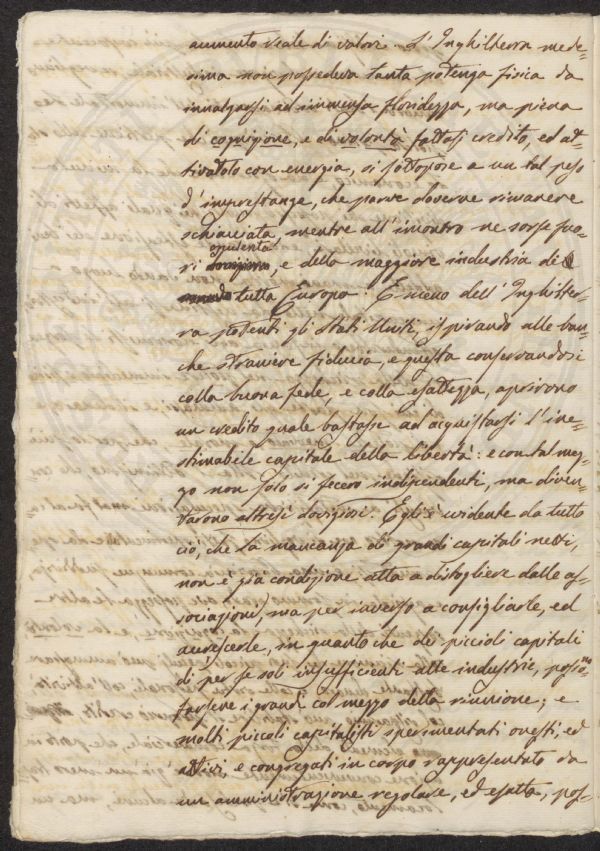 aumento reale di valori. L'Inghilterra mede-
sima non possedeva tanta potenza fisica da
innalzarsi ad immensa floridezza, ma piena
di cognizione, e di volontà fattasi credito, ed at-
tivatolo con energia, si sottopose a un tal peso
d'imprestanze, che parve doverne rimanere
schiacciata, mentre all'incontro ne sorse fuo-
opulenta
ri doviziosa, e della maggiore industria di
tutta Europa. E meno dell'Inghilter-
ra potenti gli Stati Uniti, ispirando alle ban-
che straniere fiducia, e questa conservandosi
colla buona fede, e colla esattezza, aprirono
un credito quale bastasse ad acquistarsi l'ine-
stimabile capitale della libertà: e con tal mez-
zo non solo si fecero indipendenti, ma diven-
tarono altresì doviziosi. Egli è evidente da tutto
ciò, che la mancanza di grandi capitali netti,
non è già condizione atta a distogliere dalle as-
sociazioni, ma per inverso a consigliarle, ed
accrescerle, in quanto che dei piccioli capitali
di per se soli insufficienti alle industrie, posso.no
farsene i grandi col mezzo della riunione; e
molti piccoli capitalisti sperimentati onesti, ed
attivi, e congregati in corpo rappresentato da
un amministrazione regolare, ed esatta, pos-